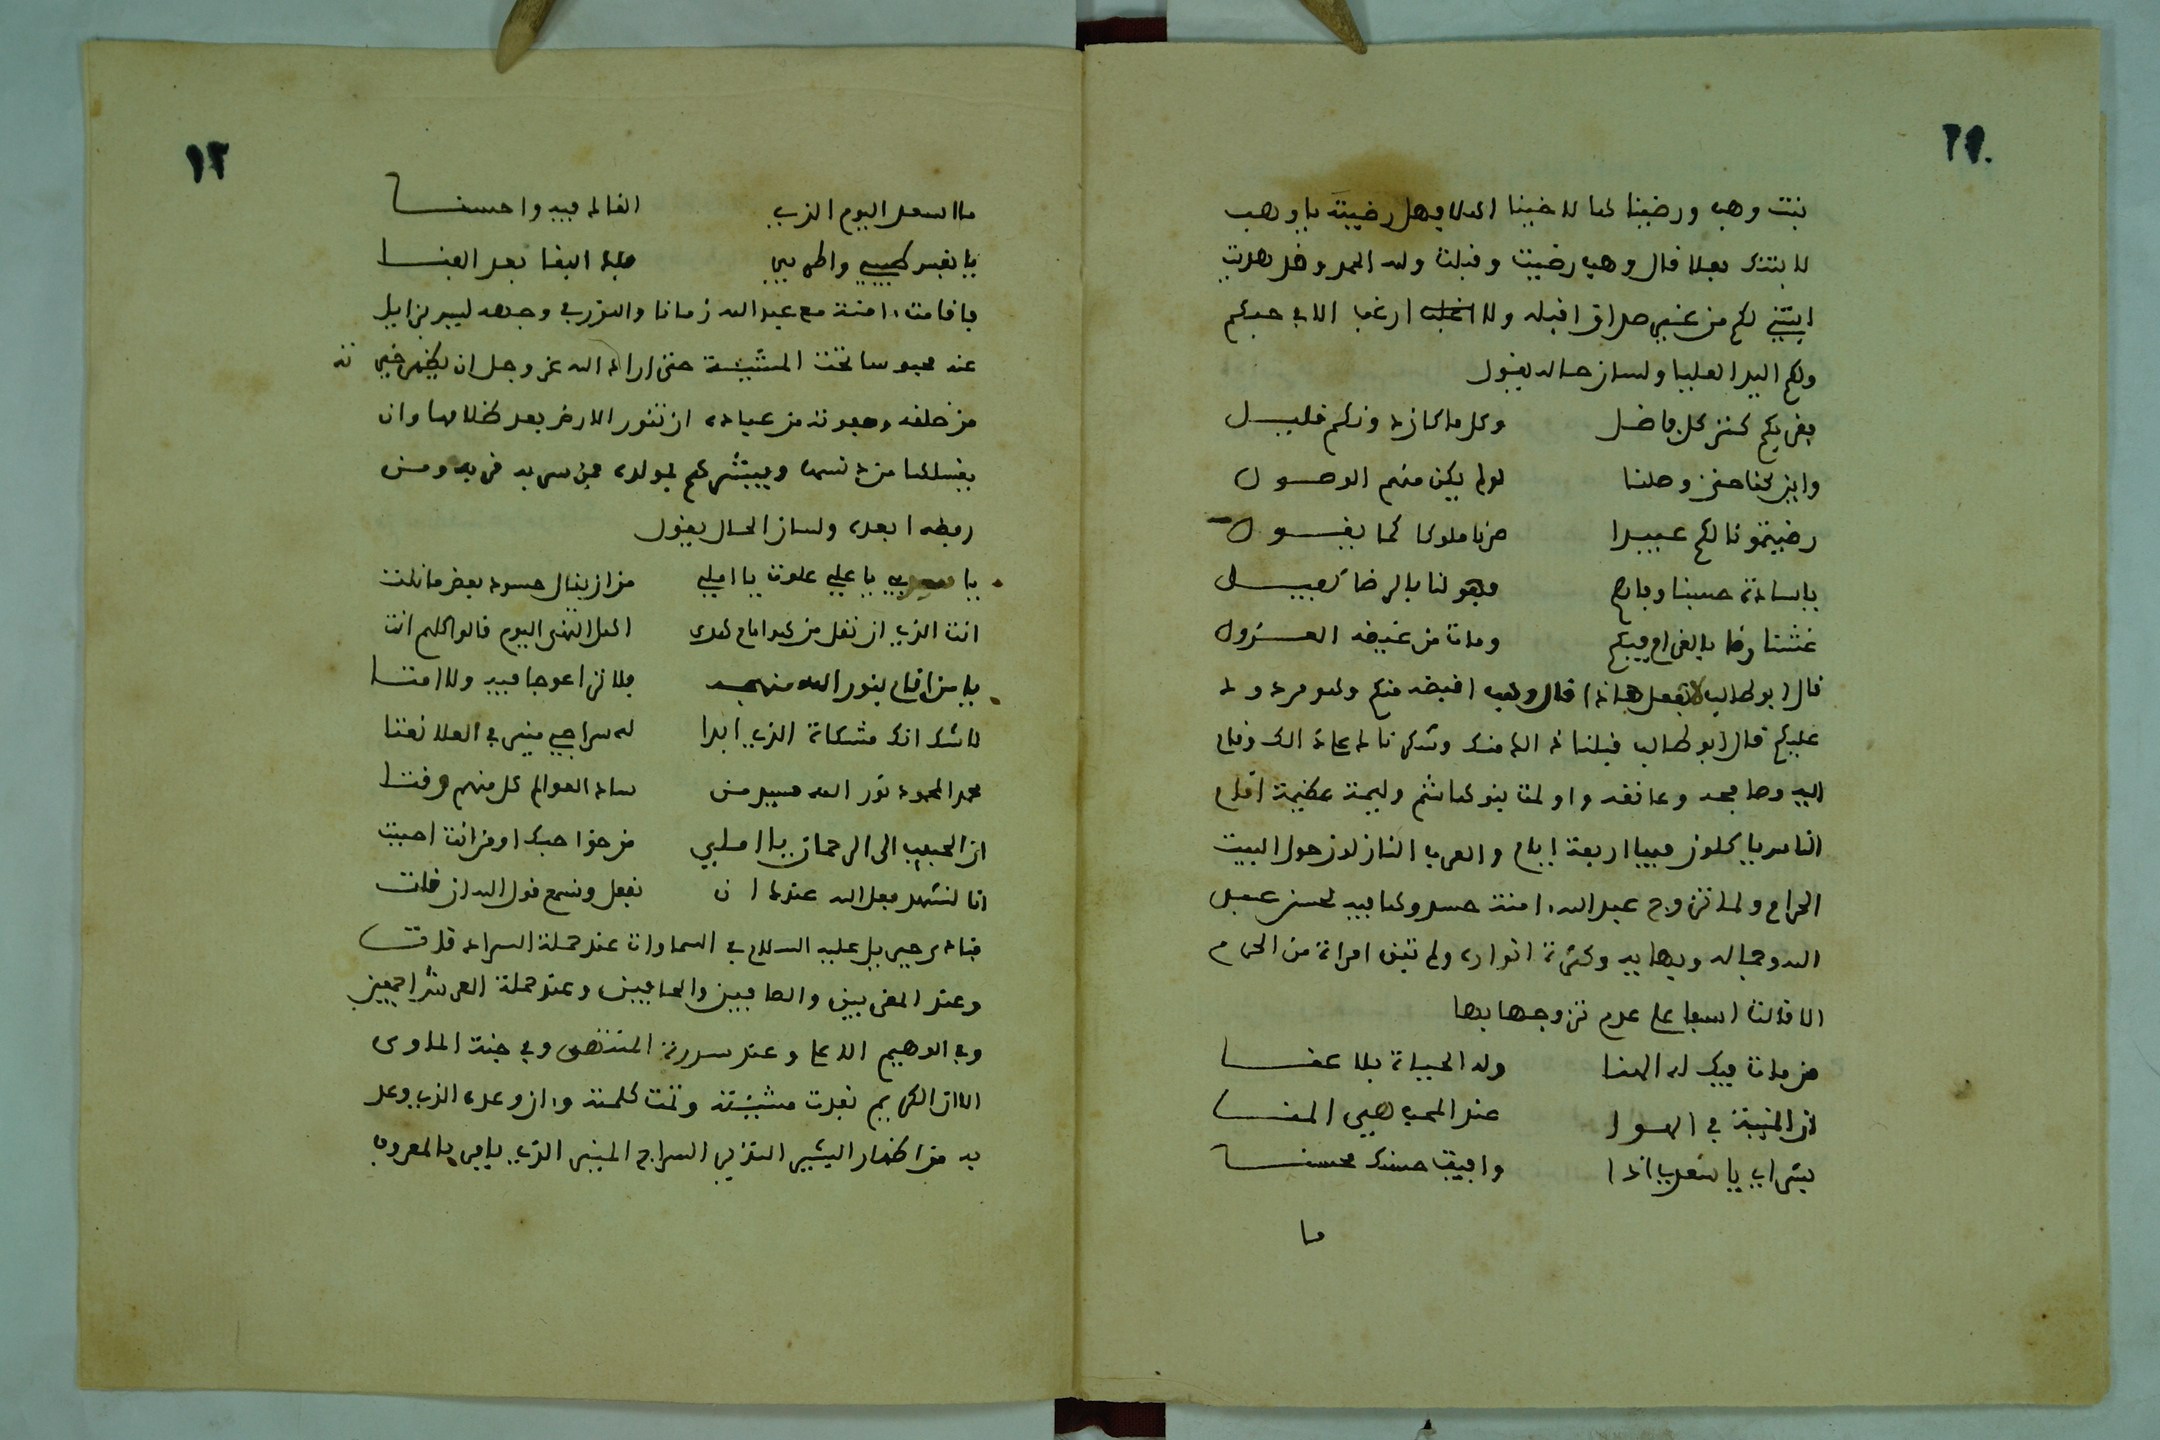 بنت وهب ورضينا لها لاخينا فهل رضيت يا وهب
لابنتك بعلا قال وهب رضيت وقبلت وله الحمد وقد هديت
ابنتي لكم من غير صداق اقبله ولا ارغب الا في حبكم
ولكم اليد العليا ولسان حاله يقول
بقربكم كنز كل فاضل وكل ما كان دونكم قليل
واين نحنا حتى وصلنا لو لم يكن منكم الوصول
رضيتمونا لكم عبيدا صرنا ملوكا كما يقول
يا سادة حسبنا وفاهم فهو لنا بالرضا كفيل
عشنا رضا بالغرام فيكم ومات من غيضه العذول
قال ابو طالب لا تفعل هاذا قال وهب اقبضه منكم وهو مردود
عليكم قال ابو طالب قبلنا ذالك منك وشكرنا له على ذالك وقام
اليه وصافحه وعانقه واولمت بنو هاشم وليمة عظيمة اقام
الناس ياكلون فيها اربعة ايام والعرب النازلون حول البيت
الحرام ولما تزوج عبد الله امنة لحسن عبد
الله وجماله وبهاييه وكثرة انواره ولم تبق امراة من الحرم
الا قالت اسفا على عدم تزوجها بها
من مات فيك له الهنا وله الحياة بلا عنا
ان المنية في الهوا عند المحب هي المنا
بشراي يا سعدي اذا وافيت حسنك محسنا
ما
١٢
ما اسعد اليوم الذي القاك فيه واحسنا
يا نفس طيبي واطربي فلك البقا بعد الفنا
فاقامت امنة مع عبد الله زمانا والنور في وجهه ليس بزايل
عنه محبوسا تحت المشيئة حتى اراد الله عز وجل ان يظهر خيرته
من خلقه وصفوته من عباده ان تنور الارض بعد ظلامها وان
يغسلها من دنسها ويبشركم بمولده فمن سر به قربه ومن
رفضه ابعده ولسان الحال يقول
يا يا علي علوت يا املي من اين ينال حسود بعض ما نلت
انت الذي ان تقل من هو امام هدى اهل النهى اليوم قالوا كلهم انت
يا من اقام بنور الله منهجه فلا ترا عوجا فيه ولا امتا
لا شك انك مشكاة الذي ابدا له سراج منير في العلا نعتا
محمد المحمود نور الله سيد من ساد العوالم كل منهم وقتا
ان الحبيب الى الرحمان يا املي من حوا حبك او من انت احببت
انا لنشهد فعل الله عندك ان نفعل ونسمع قول الله ان قلت
فنادى جبريل عليه السلام في السماوات عند حملة السرادقات
وعند المقربين والصافين والحافين وعند حملة العرش اجمعين
وعند سدرة المنتهى وفي جنة الماوى
الا ان الكريم نفدت مشيئته وتمت كلمته وان وعده الذي وعد
به من اظهار البشير النذير السراج المنير الذي يامر بالمعروف